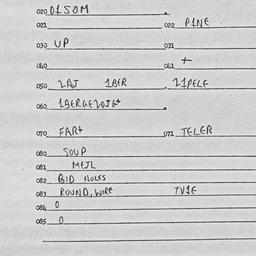 020 D1SOM
021 022 P1NE
030 UP 031
040 041 +
050 2AJ 1BER 21PELE
060 1BERGE20JG+
070 FAR+ 071 TELER
080 SOUP
081 MEJL
082 BID HOLES
083 ROUND, WIRE TV1E
084 0
085 0